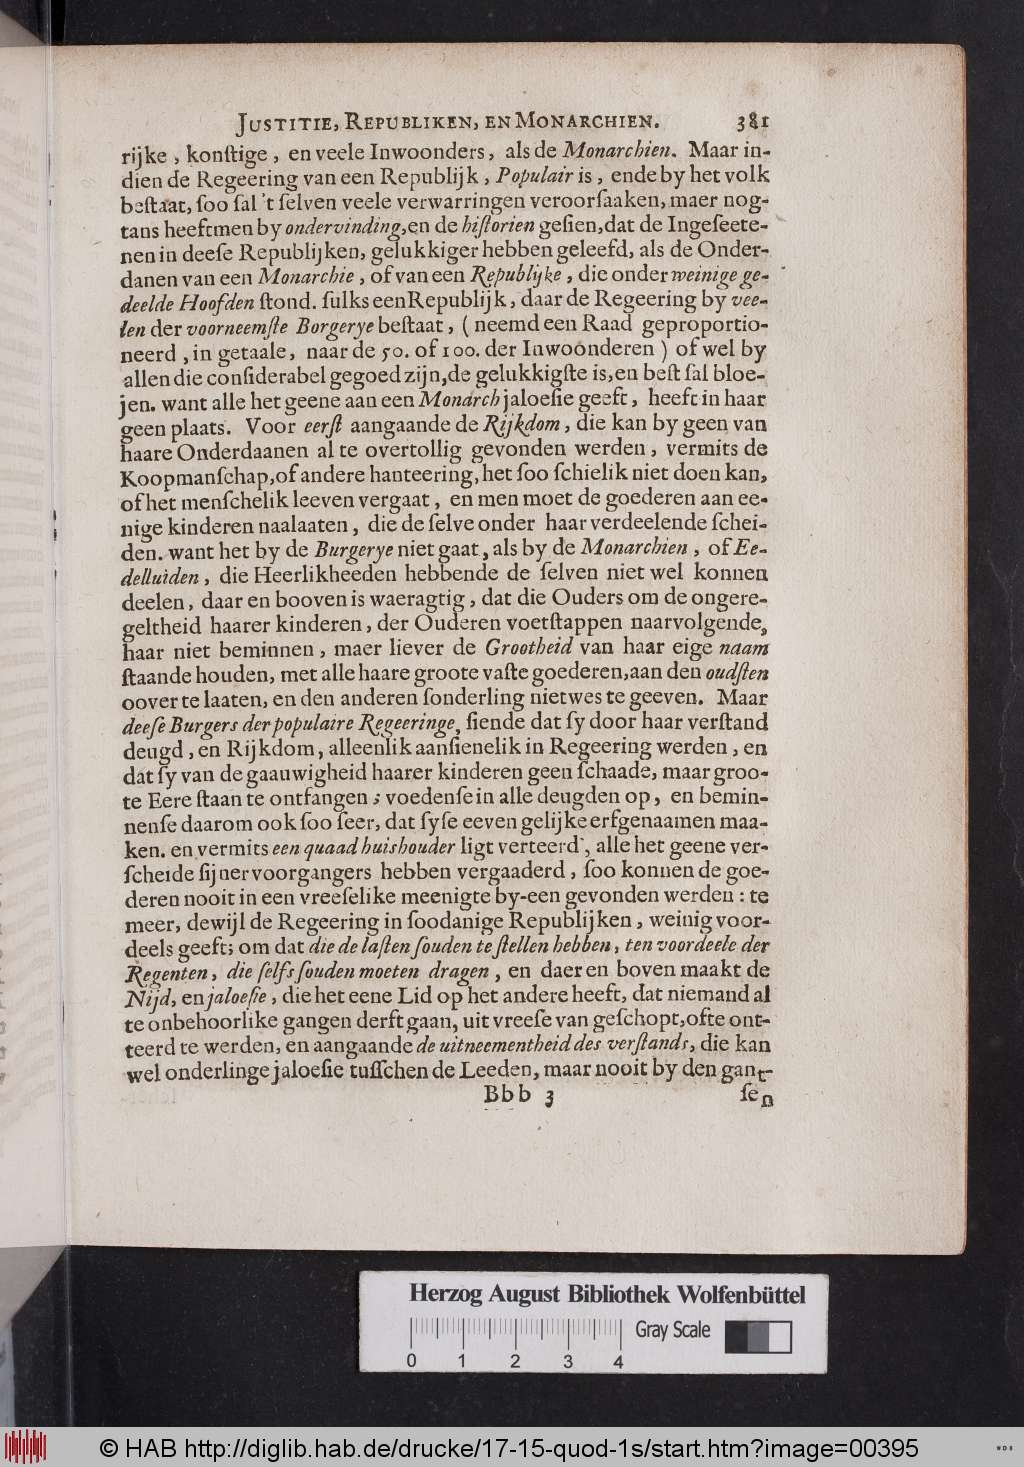 JUSTITIE, REPUBLIKEN, EN MONARCHIEN. 381
rijke, konſtige, en veele Inwoonders, als de Monarchien. Maar in-
dien de Regeering van een Republijk, Populair is, ende by het volk
beſtaat, ſoo ſal 't ſelven veele verwarringen veroorſaaken, maer nog-
tans heeftmen by ondervinding, en de hiſtorien geſien, dat de Ingeſeete-
nen in deeſe Republijken, gelukkiger hebben geleefd, als de Onder-
danen van een Monarchie, of van een Republijke, die onder weinige ge-
deelde Hoofden ſtond. ſulks een Republijk, daar de Regeering by vee-
len der voorneemſte Borgerye beſtaat, (neemd een Raad geproportio-
neerd, in getaale, naar de 50. of 100. der Inwoonderen) of wel by
allen die conſiderabel gegoed zijn, de gelukkigſte is, en beſt ſal bloe-
jen. want alle het geene aan een Monarch jaloeſie geeft, heeft in haar
geen plaats. Voor eerſt aangaande de Rijkdom, die kan by geen van
haare Onderdaanen al te overtollig gevonden werden, vermits de
Koopmanſchap, of andere hanteering, het ſoo ſchielik niet doen kan,
of het menſchelik leeven vergaat, en men moet de goederen aan ee-
nige kinderen naalaaten, die de ſelve onder haar verdeelende ſchei-
den. want het by de Burgerye niet gaat, als by de Monarchien, of Ee-
delluiden, die Heerlikheeden hebbende de ſelven niet wel konnen
deelen, daar en booven is waeragtig, dat die Ouders om de ongere-
geltheid haarer kinderen, der Ouderen voetſtappen naarvolgende,
haar niet beminnen, maer liever de Grootheid van haar eige naam
ſtaande houden, met alle haare groote vaſte goederen, aan den oudſten
oover te laaten, en den anderen ſonderling niet wes te geeven. Maar
deeſe Burgers der populaire Regeeringe, ſiende dat ſy door haar verſtand
deugd, en Rijkdom, alleenlik aanſienelik in Regeering werden, en
dat ſy van de gaauwigheid haarer kinderen geen ſchaade, maar groo-
te Eere ſtaan te ontfangen; voedenſe in alle deugden op, en bemin-
nenſe daarom ook ſoo ſeer, dat ſyſe eeven gelijke erfgenaamen maa-
ken. en vermits een quaad huishouder ligt verteerd, alle het geene ver-
ſcheide ſijner voorgangers hebben vergaaderd, ſoo konnen de goe-
deren nooit in een vreeſelike meenigte by-een gevonden werden: te
meer, dewijl de Regeering in ſoodanige Republijken, weinig voor-
deels geeft; om dat die de laſten ſouden te ſtellen hebben, ten voordeele der
Regenten, die ſelfs ſouden moeten dragen, en daer en boven maakt de
Nijd, en jaloeſie, die het eene Lid op het andere heeft, dat niemand al
te onbehoorlike gangen derft gaan, uit vreeſe van geſchopt, ofte ont-
teerd te werden, en aangaande de uitneementheid des verſtands, die kan
wel onderlinge jaloeſie tuſſchen de Leeden, maar nooit by den gant-
Bbb 3 ſen
Herzog August Bibliothek Wolfenbüttel
Gray Scale
0 1 2 3 4
© HAB http://diglib.hab.de/drucke/17-15-quod-1s/start.htm?image=00395